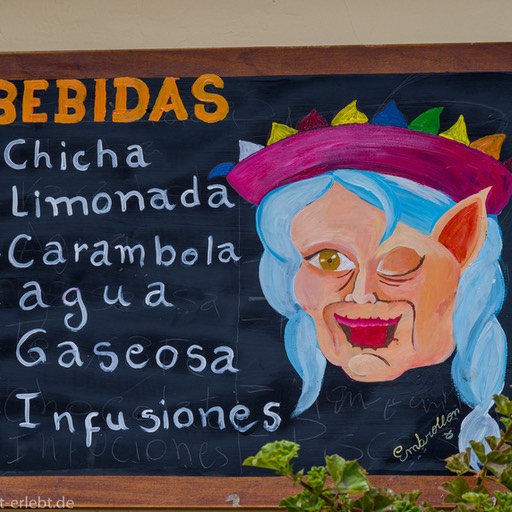 BEBIDAS
Chicha
Limonada
Carambola
agua
Gaseosa
Infusiones
Embrollon
t-erlebt.de